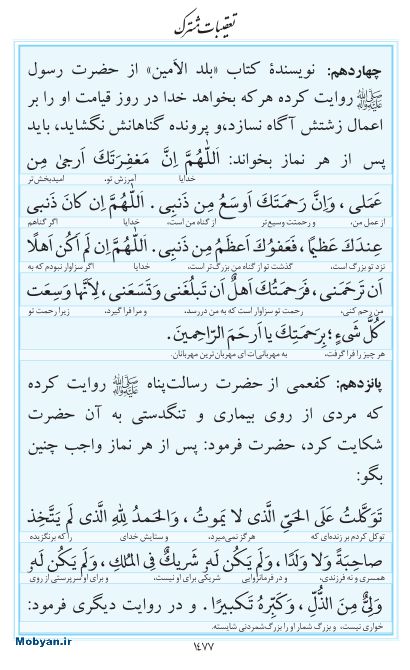 تعقیبات مشترک
چهاردهم: نویسندهٔ کتاب «بلد الأمین» از حضرت رسول
ﷺ روایت کرده هرکه بخواهد خدا در روز قیامت او را بر
اعمال زشتش آگاه نسازد،و پرونده گناهانش نگشاید، باید
پس از هر نماز بخواند: اَللّٰهُمَّ اِنَّ مَغْفِرَتَكَ اَرجىٰ مِن
خدایا آمرزش تو، امیدبخش‌تر
عَمَلى ، وَاِنَّ رَحمَتَكَ اَوسَعُ مِن ذَنبى . اَللّٰهُمَّ اِن كانَ ذَنبى
از عمل من، و رحمتت وسیع‌تر از گناه من است، خدایا اگر گناهم
عِندَكَ عَظيمًا ، فَعَفوُكَ اَعظَمُ مِن ذَنبى. اَللّٰهُمَّ اِن لَم اَكُن اَهلًا
نزد تو بزرگ است، گذشت تو از گناه من بزرگ‌تر است، خدایا اگر سزاوار نبودم که به
اَن تَرحَمَنى ، فَرَحمَتُكَ اَهلٌ اَن تَبلُغَنى وَتَسَعَنى ، لِاَنَّها وَسِعَت
من رحم کنی، رحمت تو سزاوار است که به من دررسد، و مرا فرا گیرد، زیرا رحمت تو
كُلَّ شَىءٍ ؛ بِرَحمَتِكَ يا اَرحَمَ الرّاحِمينَ.
هر چیز را فرا گرفت، به مهربانی‌ات ای مهربان‌ترین مهربانان.
پانزدهم: کفعمی از حضرت رسالت‌پناه ﷺ روایت کرده
که مردی از روی بیماری و تنگدستی به آن حضرت
شکایت کرد، حضرت فرمود: پس از هر نماز واجب چنین
بگو:
تَوَكَّلتُ عَلَى الحَىِّ الَّذى لا يَموتُ ، وَالحَمدُ لِلّٰهِ الَّذى لَم يَتَّخِذ
توکل کردم بر زنده‌ای که هرگز نمی‌میرد، و ستایش خدای را که برنگزیده
صاحِبَةً وَلا وَلَدًا ، وَلَم يَكُن لَهُ شَريكٌ فِى المُلكِ ، وَلَم يَكُن لَهُ
همسری و نه فرزندی، و در فرمانروایی شریکی برای او نیست، و برای او سرپرستی از روی
وَلِىٌّ مِنَ الذُّلِّ ، وَكَبِّرهُ تَكبيرًا . و در روایت دیگری فرمود:
خواری نیست، و بزرگ شمار او را بزرگ‌شمردنی شایسته.
Mobyan.ir
۱۴۷۷